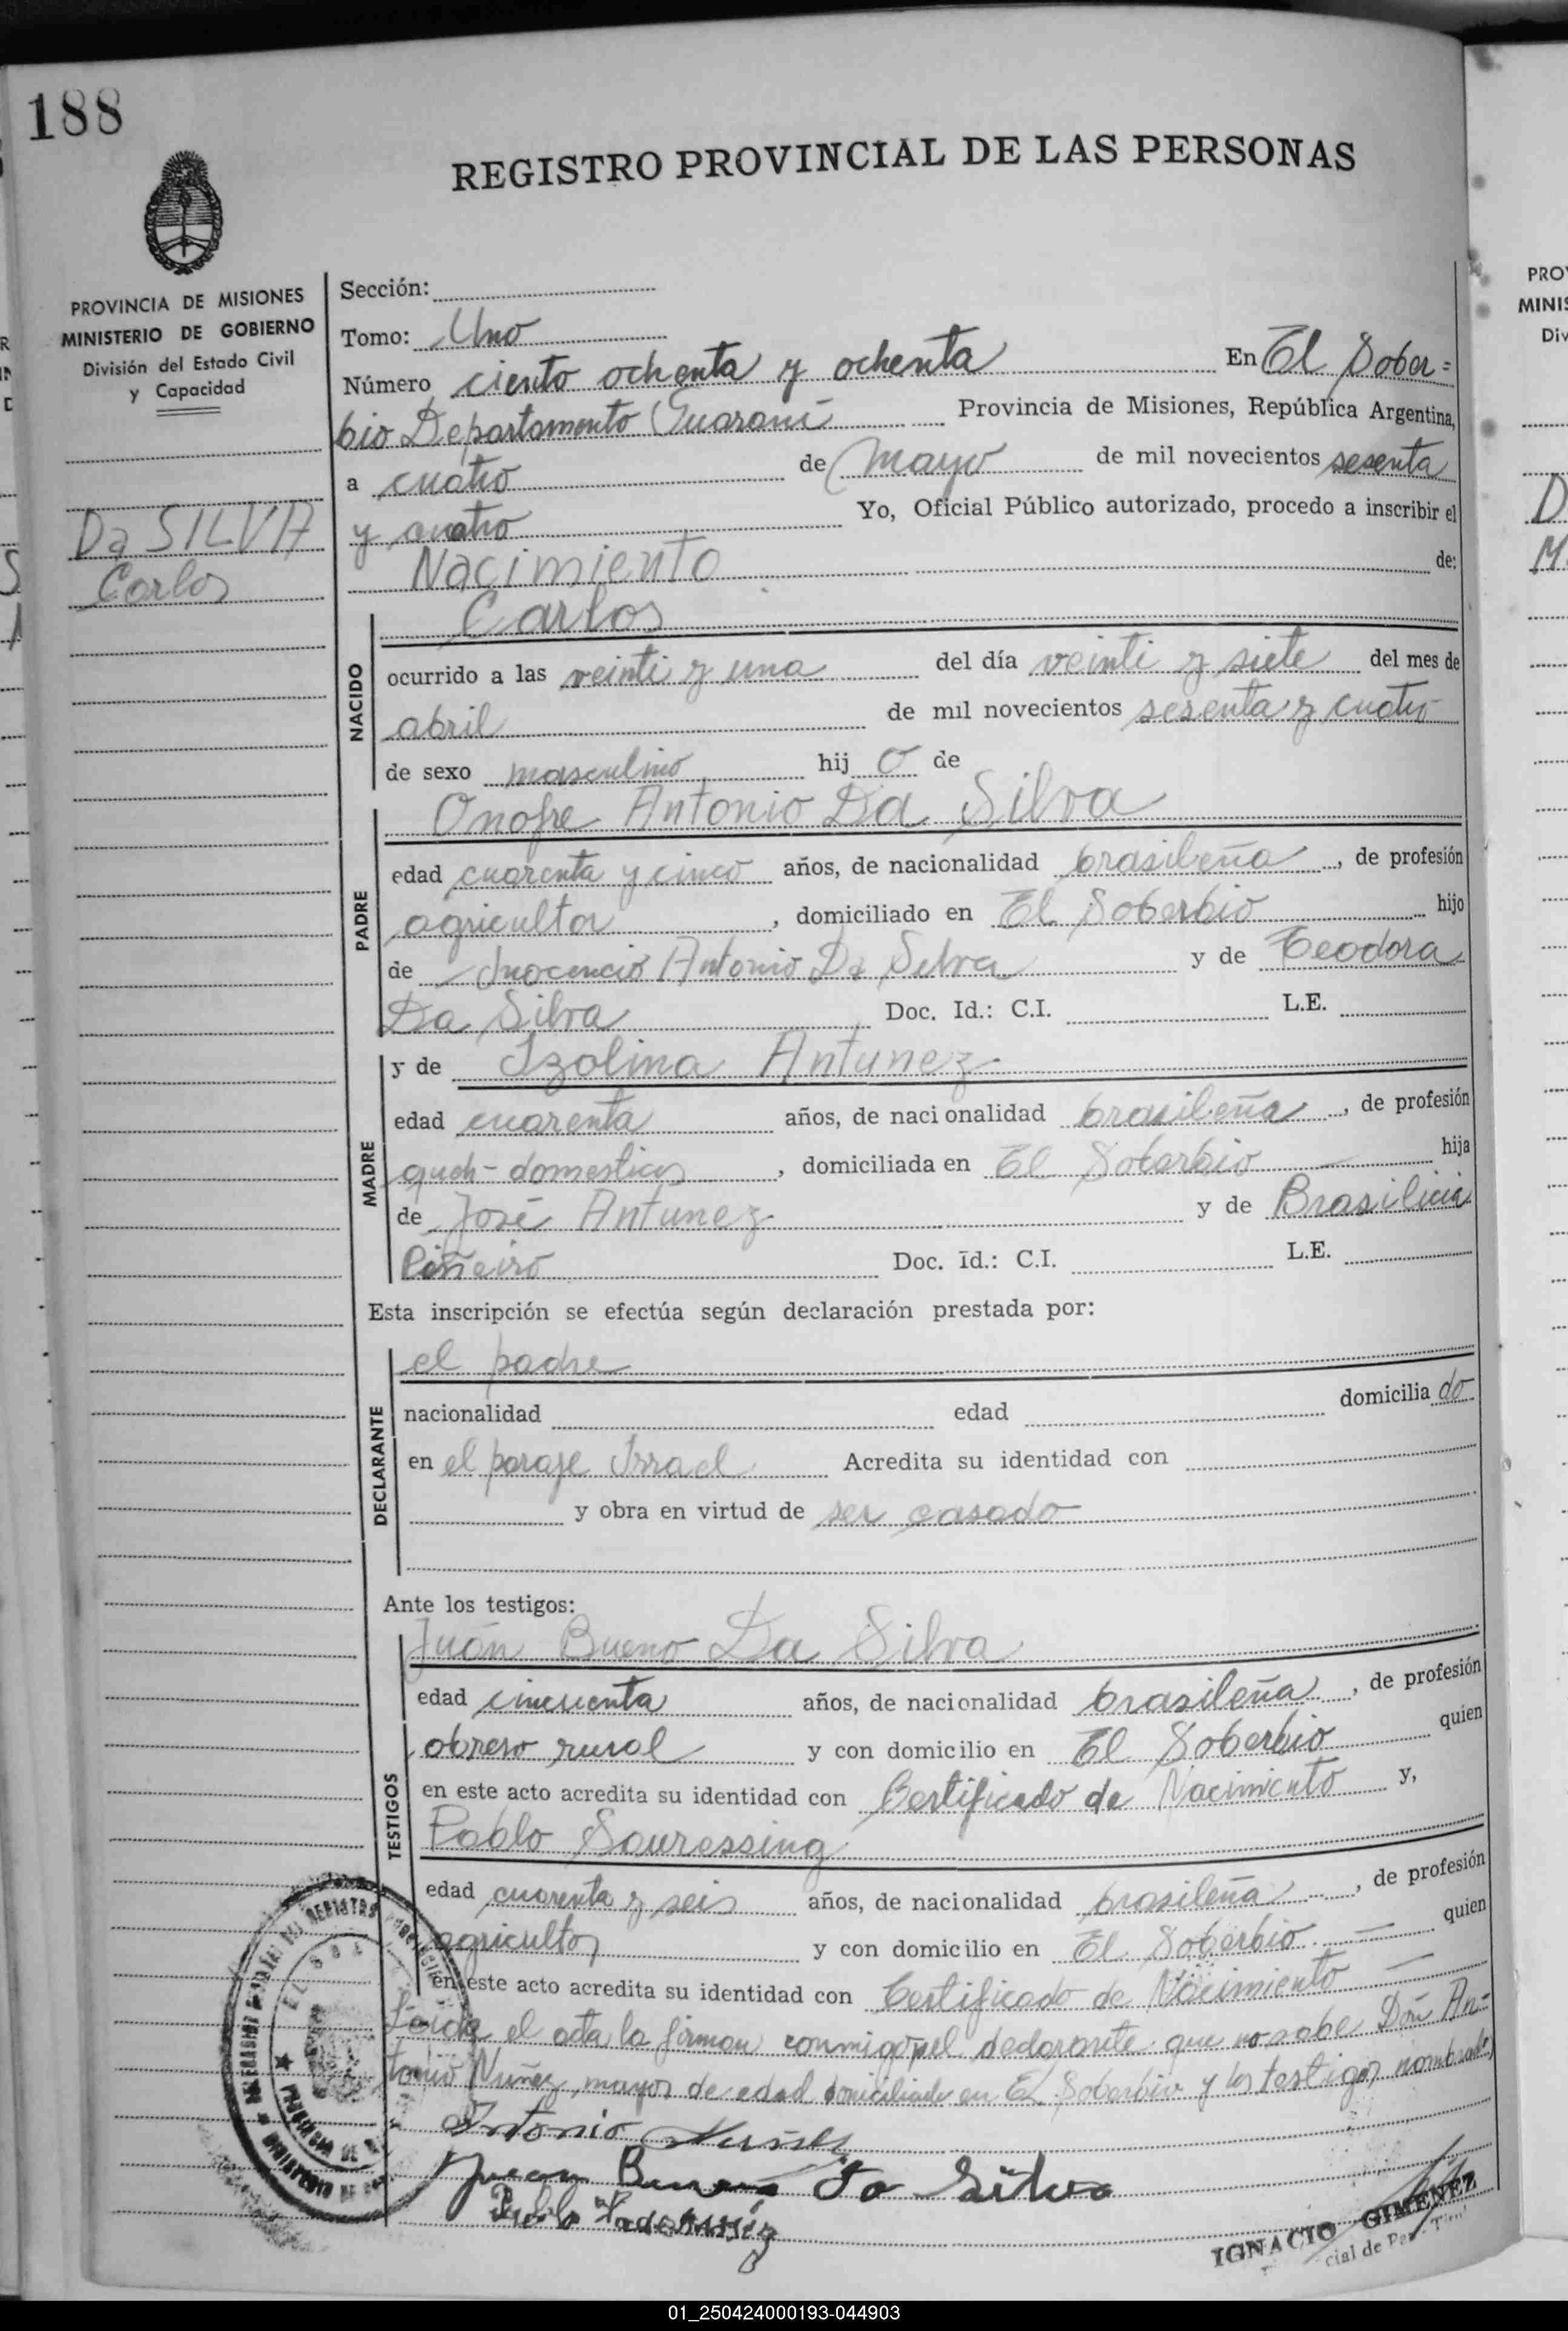 188
REGISTRO PROVINCIAL DE LAS PERSONAS
PROVINCIA DE MISIONES
MINISTERIO DE GOBIERNO
División del Estado Civil
y Capacidad
Da SILVA
Carlos
Sección:
Tomo: Uno
Número ciento ochenta y ochenta En El Sober=
bio Departamento Guaraní Provincia de Misiones, República Argentina,
a cuatro de mayo de mil novecientos sesenta
y cuatro Yo, Oficial Público autorizado, procedo a inscribir el
Nacimiento de:
NACIDO
Carlos
ocurrido a las veinti y una del día veinti y siete del mes de
abril de mil novecientos sesenta y cuatro
de sexo masculino hij o de
PADRE
Onofre Antonio Da Silva
edad cuarenta y cinco años, de nacionalidad brasileña, de profesión
agricultor, domiciliado en El Soberbio hijo
de Inocencio Antonio Da Selva y de Teodora
Da Silva Doc. Id.: C.I. L.E.
MADRE
y de Izolina Antunez
edad cuarenta años, de nacionalidad brasileña, de profesión
queh-domesticos, domiciliada en El Soberbio hija
de José Antunez y de Brasilicia
Piñeiro Doc. Id.: C.I. L.E.
Esta inscripción se efectúa según declaración prestada por:
DECLARANTE
el padre
nacionalidad edad domicilia do
en el paraje Israel Acredita su identidad con
y obra en virtud de ser casado
Ante los testigos:
TESTIGOS
Juán Bueno Da Silva
edad cincuenta años, de nacionalidad brasileña, de profesión
obrero rural y con domicilio en El Soberbio quien
en este acto acredita su identidad con Certificado de Nacimiento y,
Pablo Sauressing
edad cuarenta y seis años, de nacionalidad brasileña, de profesión
agricultor y con domicilio en El Soberbio quien
en este acto acredita su identidad con Certificado de Nacimiento
Leída el acta la firman conmigo el declarante que no sabe Don An=
tonio Nuñez, mayor de edad domiciliado en El Soberbio y los testigos nombrados
Antonio Nuñez
Juan Bueno da Silva
Pablo
IGNACIO GIMENEZ
PRO
MINIS
Div
01_250424000193-044903